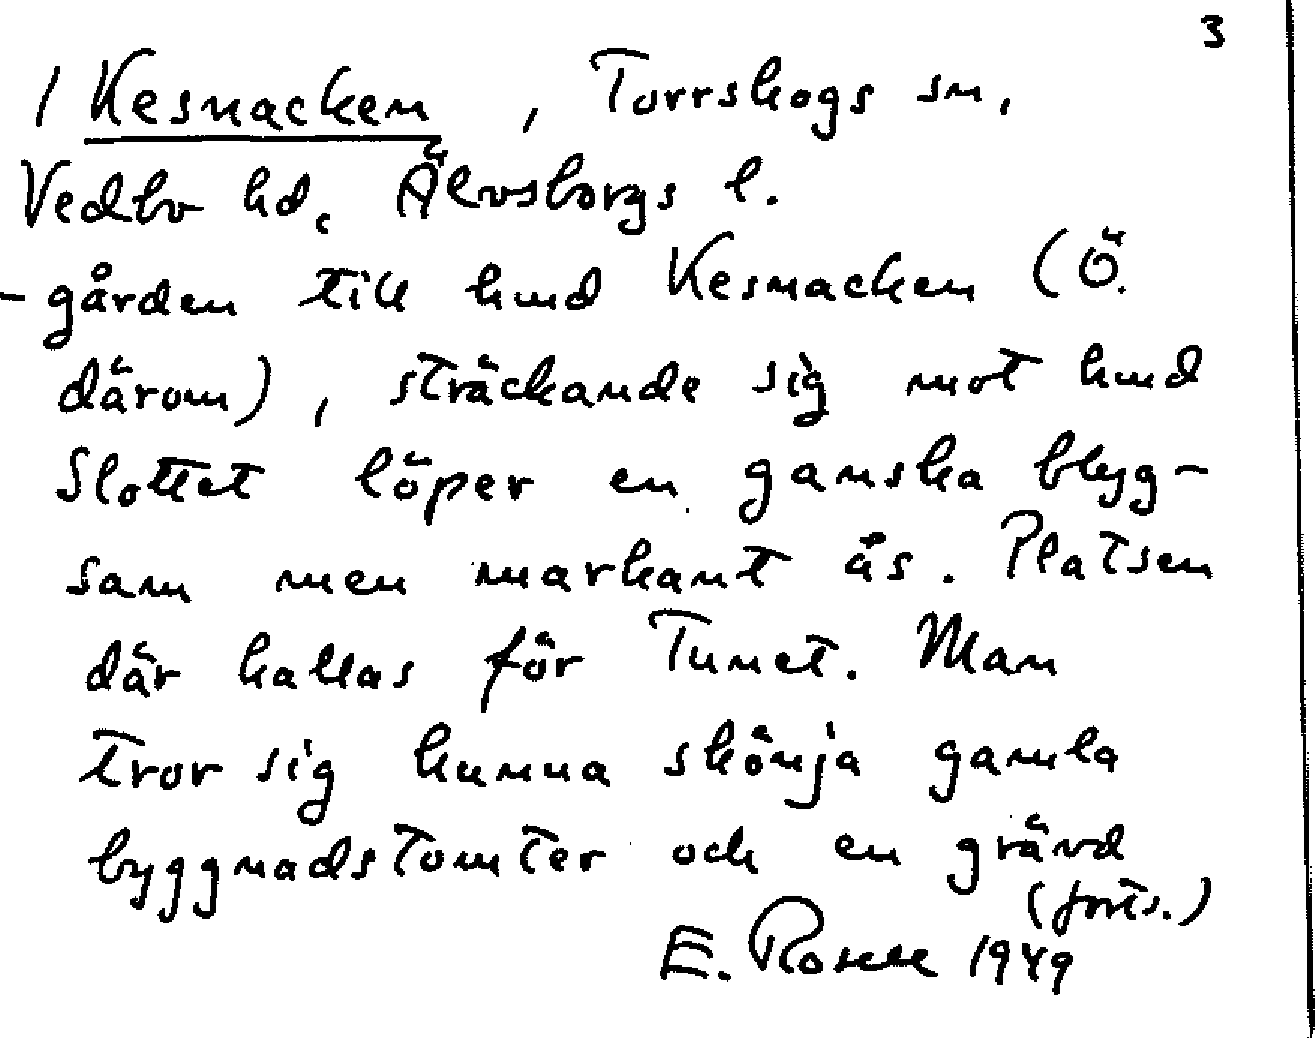 3
/ Kesnacken , Torrskogs sn,
Vedbo hd, Älvsborgs l.
-gården till hmd Kesnacken (Ö.
därom), sträckande sig mot hmd
Slottet löper en ganska blyg-
sam men markant ås. Platsen
där kallas för Tunet. Man
tror sig kunna skönja gamla
byggnadstomter och en grävd
(forts.)
E. 1949